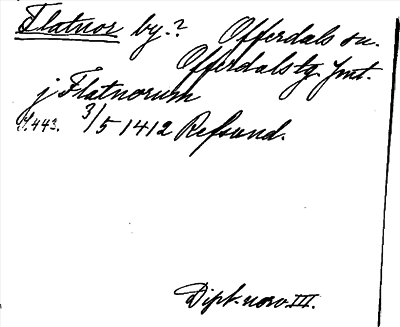 Flatnor by.? Offerdals sn.
Offerdals tg. Jmt.
j Flatnorum
443. 3/5 1412 Refsund.
Dipl. norv. III.